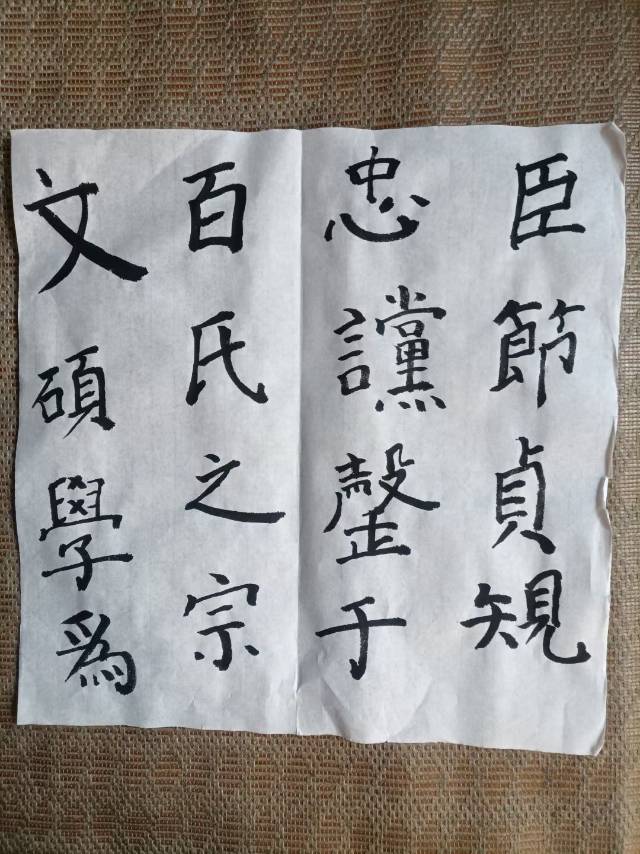 文碩學爲
百氏之宗
忠讜罄于
臣節貞規